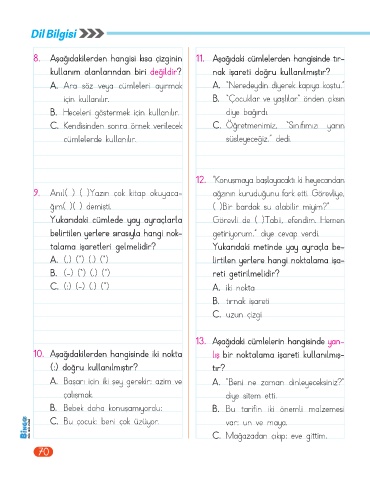 Dil Bilgisi
8. Aşağıdakilerden hangisi kısa çizginin
kullanım alanlarından biri değildir?
A. Ara söz veya cümleleri ayırmak
için kullanılır.
B. Heceleri göstermek için kullanılır.
C. Kendisinden sonra örnek verilecek
cümlelerde kullanılır.
9. Anıl( ) ( )Yazın çok kitap okuyaca-
ğım( )( ) demişti.
Yukarıdaki cümlede yay ayraçlarla
belirtilen yerlere sırasıyla hangi nok-
talama işaretleri gelmelidir?
A. (,) (") (.) (")
B. (-) (") (.) (")
C. (:) (-) (.) (")
10. Aşağıdakilerden hangisinde iki nokta
(:) doğru kullanılmıştır?
A. Başarı için iki şey gerekir: azim ve
çalışmak.
B. Bebek daha konuşamıyordu:
C. Bu çocuk: beni çok üzüyor.
11. Aşağıdaki cümlelerden hangisinde tır-
nak işareti doğru kullanılmıştır?
A. "Neredeydin diyerek kapıya koştu."
B. "Çocuklar ve yaşlılar" önden çıksın
diye bağırdı.
C. Öğretmenimiz, "Sınıfımızı yarın
süsleyeceğiz." dedi.
12. "Konuşmaya başlayacaktı ki heyecandan
ağzının kuruduğunu fark etti. Görevliye,
( )Bir bardak su alabilir miyim?"
Görevli de ( )Tabii, efendim. Hemen
getiriyorum." diye cevap verdi.
Yukarıdaki metinde yay ayraçla be-
lirtilen yerlere hangi noktalama işa-
reti getirilmelidir?
A. iki nokta
B. tırnak işareti
C. uzun çizgi
13. Aşağıdaki cümlelerin hangisinde yan-
lış bir noktalama işareti kullanılmış-
tır?
A. "Beni ne zaman dinleyeceksiniz?"
diye sitem etti.
B. Bu tarifin iki önemli malzemesi
var: un ve maya.
C. Mağazadan çıkıp; eve gittim.
Bingo
70